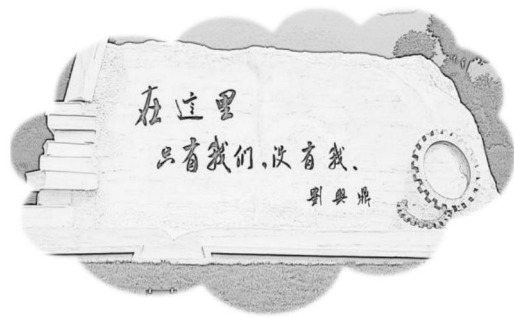 在这里
只有我们,没有我、
劉興鼎